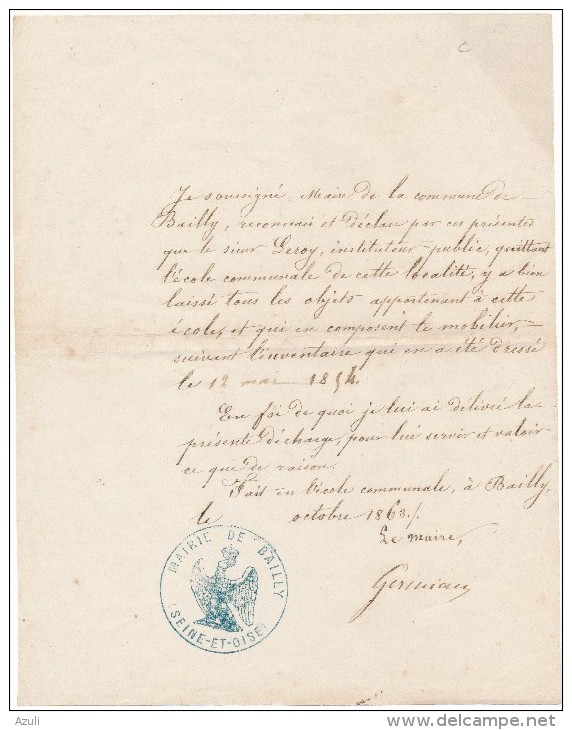 C
Je soussigné, Maire de la commune de
Bailly, reconnais et déclare par ces présentes
que le sieur Leroy, instituteur public, quittant
l'école communale de cette localité, y a bien
laissé tous les objets appartenant à cette
école, et qui en composent le mobilier,
suivant l'inventaire qui en a été dressé
le 12 mai 1854.
En foi de quoi je lui ai délivré la
présente décharge, pour lui servir et valoir
ce que de raison.
Fait en l'école communale, à Bailly,
le octobre 1863./.
Le maire,
MAIRIE DE BAILLY
(SEINE-ET-OISE)
Azuli
www.delcampe.net